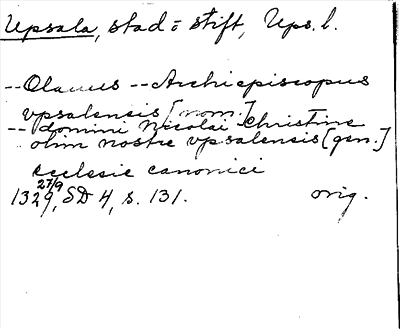 Upsala, stad o stift, Ups. l.
-- Olauus -- Archiepiscopus
vpsalensis [nom.]
-- domini Nicolai Christine
olim nostre vpsalensis [gen.]
ecclesie canonici
27/9
1329, SD 4, s. 131. orig.